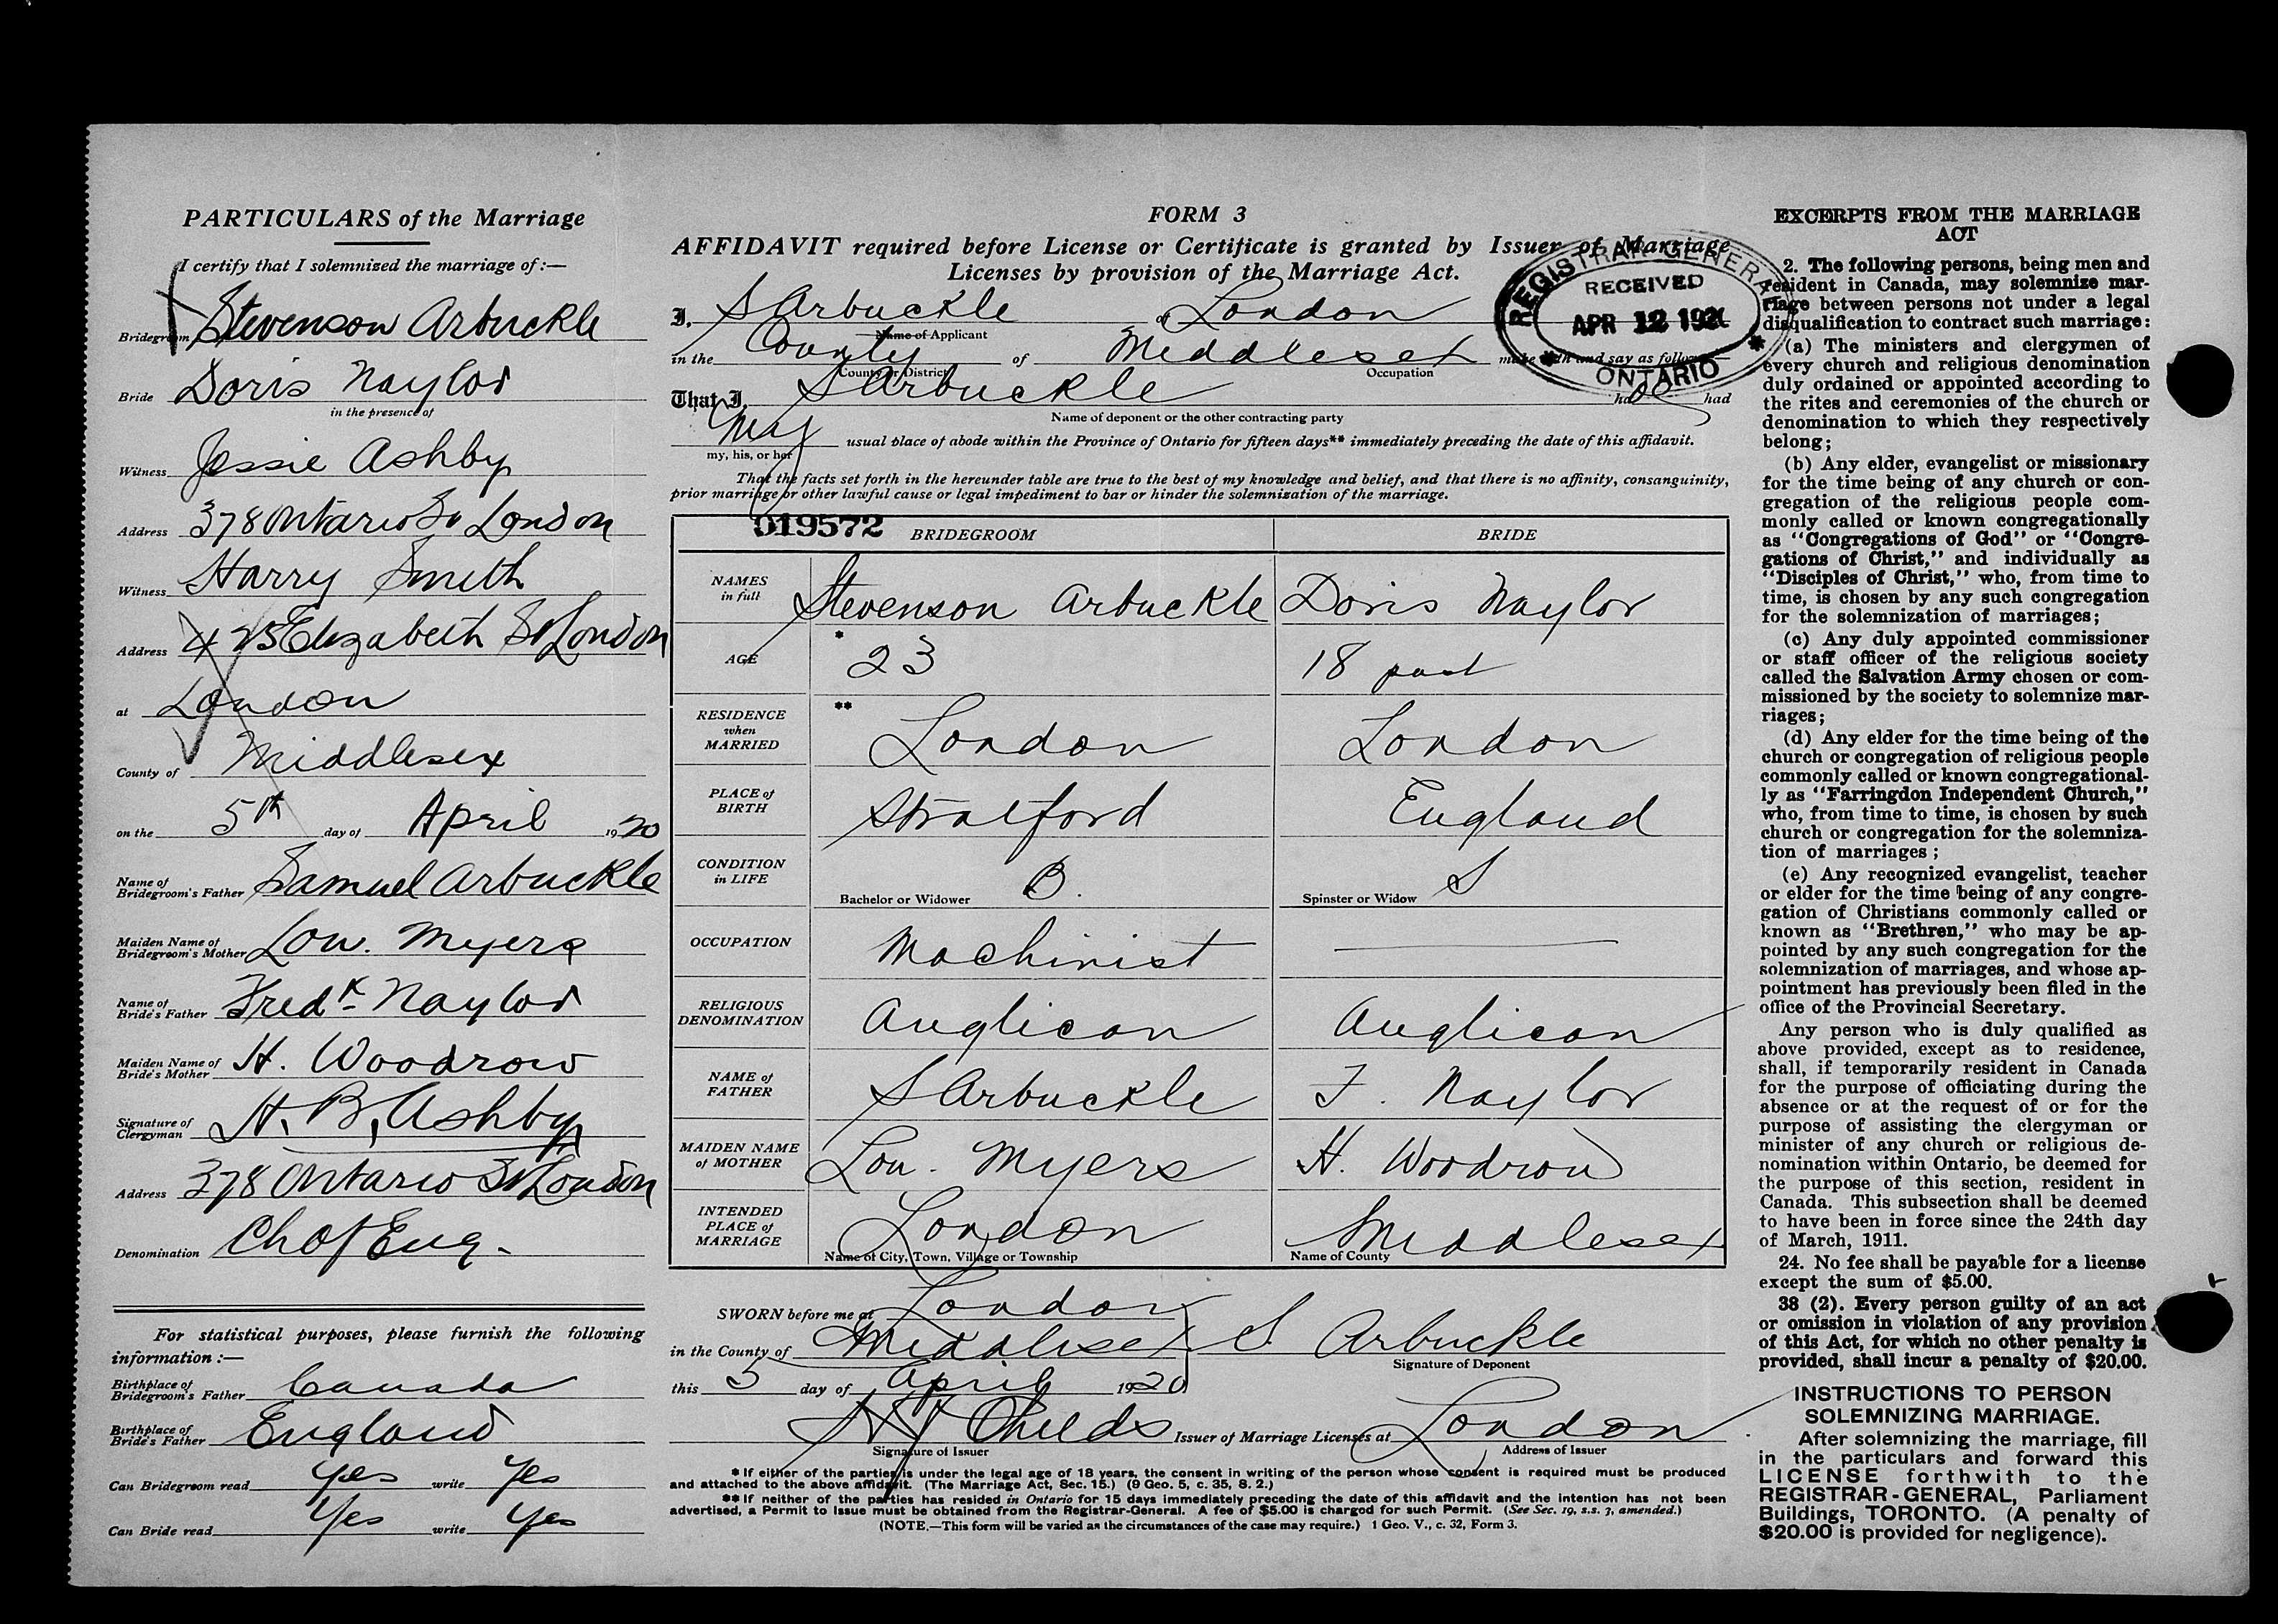 PARTICULARS of the Marriage
I certify that I solemnized the marriage of:—
Bridegroom Stevenson Arbuckle
Bride Doris Naylor
in the presence of
Witness Jessie Ashby
Address 378 Ontario St London
Witness Harry Smith
Address 425 Elizabeth St London
at London
County of Middlesex
on the 5th day of April 1920
Name of Bridegroom's Father Samuel Arbuckle
Maiden Name of Bridegroom's Mother Lou. Myers
Name of Bride's Father Fredk Naylor
Maiden Name of Bride's Mother H. Woodrow
Signature of Clergyman H. B, Ashby
Address 378 Ontario St London
Denomination Ch of Eng.
For statistical purposes, please furnish the following
information :—
Birthplace of Bridegroom's Father Canada
Birthplace of Bride's Father England
Can Bridegroom read yes write yes
Can Bride read Yes write yes
FORM 3
AFFIDAVIT required before License or Certificate is granted by Issuer of Marriage
Licenses by provision of the Marriage Act.
I, S Arbuckle of London
Name of Applicant
in the County of Middlesex make oath and say as follows:—
County or District Occupation
That I, S Arbuckle had
Name of deponent or the other contracting party
my usual place of abode within the Province of Ontario for fifteen days** immediately preceding the date of this affidavit.
my, his, or her
That the facts set forth in the hereunder table are true to the best of my knowledge and belief, and that there is no affinity, consanguinity,
prior marriage or other lawful cause or legal impediment to bar or hinder the solemnization of the marriage.
REGISTRAR GENERAL
RECEIVED
APR 12 192
ONTARIO
019572 BRIDEGROOM BRIDE
NAMES in full Stevenson Arbuckle Doris Naylor
AGE * 23 18 past
RESIDENCE when MARRIED ** London London
PLACE of BIRTH Stratford England
CONDITION in LIFE Bachelor or Widower B. Spinster or Widow S
OCCUPATION Machinist —
RELIGIOUS DENOMINATION Anglican Anglican
NAME of FATHER S Arbuckle F. Naylor
MAIDEN NAME of MOTHER Lou. Myers H. Woodrow
INTENDED PLACE of MARRIAGE London Middlesex
Name of City, Town, Village or Township Name of County
SWORN before me at London
in the County of Middlesex S. Arbuckle
Signature of Deponent
this 5 day of April 1920
Childs Issuer of Marriage Licenses at London
Signature of Issuer Address of Issuer
* If either of the parties is under the legal age of 18 years, the consent in writing of the person whose consent is required must be produced
and attached to the above affidavit. (The Marriage Act, Sec. 15.) (9 Geo. 5, c. 35, S. 2.)
** If neither of the parties has resided in Ontario for 15 days immediately preceding the date of this affidavit and the intention has not been
advertised, a Permit to Issue must be obtained from the Registrar-General. A fee of $5.00 is charged for such Permit. (See Sec. 19, s.s. 3, amended.)
(NOTE.—This form will be varied as the circumstances of the case may require.) 1 Geo. V., c. 32, Form 3.
EXCERPTS FROM THE MARRIAGE
ACT
2. The following persons, being men and
resident in Canada, may solemnize mar-
riage between persons not under a legal
disqualification to contract such marriage:
(a) The ministers and clergymen of
every church and religious denomination
duly ordained or appointed according to
the rites and ceremonies of the church or
denomination to which they respectively
belong;
(b) Any elder, evangelist or missionary
for the time being of any church or con-
gregation of the religious people com-
monly called or known congregationally
as "Congregations of God" or "Congre-
gations of Christ," and individually as
"Disciples of Christ," who, from time to
time, is chosen by any such congregation
for the solemnization of marriages;
(c) Any duly appointed commissioner
or staff officer of the religious society
called the Salvation Army chosen or com-
missioned by the society to solemnize mar-
riages;
(d) Any elder for the time being of the
church or congregation of religious people
commonly called or known congregational-
ly as "Farringdon Independent Church,"
who, from time to time, is chosen by such
church or congregation for the solemniza-
tion of marriages ;
(e) Any recognized evangelist, teacher
or elder for the time being of any congre-
gation of Christians commonly called or
known as "Brethren," who may be ap-
pointed by any such congregation for the
solemnization of marriages, and whose ap-
pointment has previously been filed in the
office of the Provincial Secretary.
Any person who is duly qualified as
above provided, except as to residence,
shall, if temporarily resident in Canada
for the purpose of officiating during the
absence or at the request of or for the
purpose of assisting the clergyman or
minister of any church or religious de-
nomination within Ontario, be deemed for
the purpose of this section, resident in
Canada. This subsection shall be deemed
to have been in force since the 24th day
of March, 1911.
24. No fee shall be payable for a license
except the sum of $5.00.
38 (2). Every person guilty of an act
or omission in violation of any provision
of this Act, for which no other penalty is
provided, shall incur a penalty of $20.00.
INSTRUCTIONS TO PERSON
SOLEMNIZING MARRIAGE.
After solemnizing the marriage, fill
in the particulars and forward this
LICENSE forthwith to the
REGISTRAR-GENERAL, Parliament
Buildings, TORONTO. (A penalty of
$20.00 is provided for negligence).